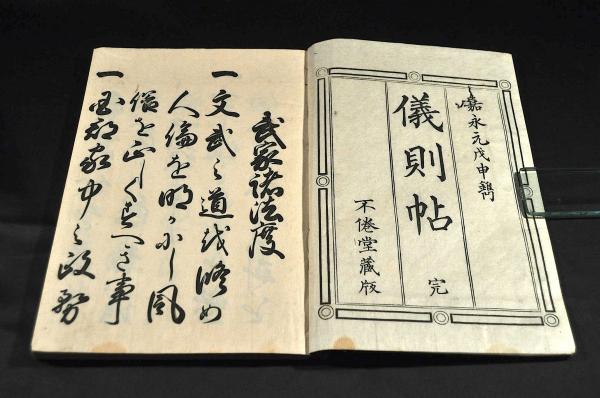 嘉永元戊申鐫
儀則帖 完
不倦�藏版
武家諸法度
一文武之道越修め
人倫を明かにし風
俗を正しくすへき事
一国郡家中之政務